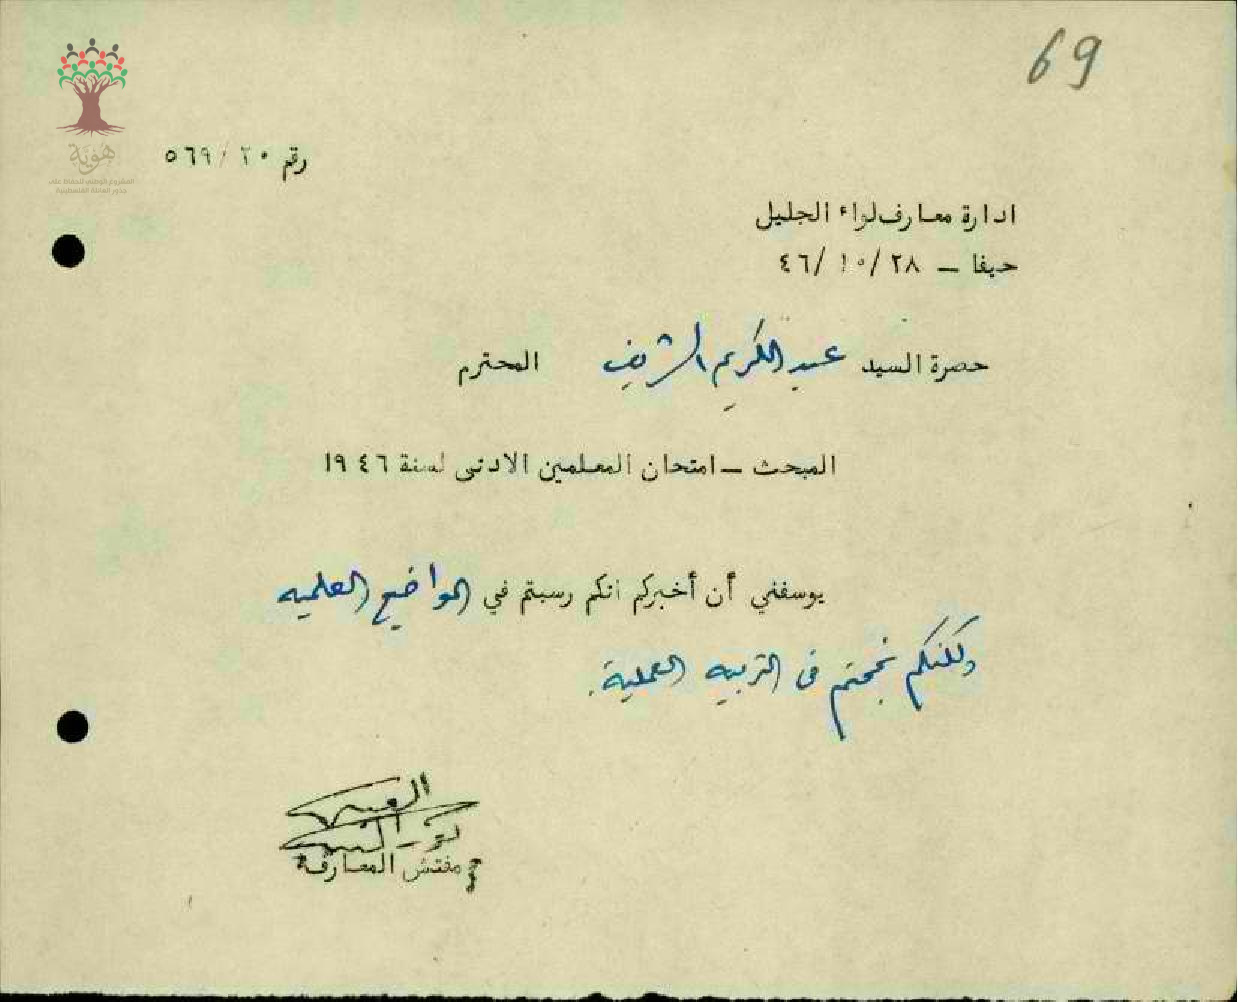 69
هوية
المشروع الوطني للحفاظ على
جذور العائلة الفلسطينية
رقم ٢٠/ ٥٦٩
ادارة معارف لواء الجليل
حيفا – ٢٨/ ١٠/ ٤٦
حضرة السيد عبد الكريم الشريف المحترم
المبحث – امتحان المعلمين الادنى لسنة ١٩٤٦
يوسفني أن أخبركم انكم رسبتم في المواضيع العلميه
ولكنكم نجحتم في التربيه العملية.
مفتش المعارف